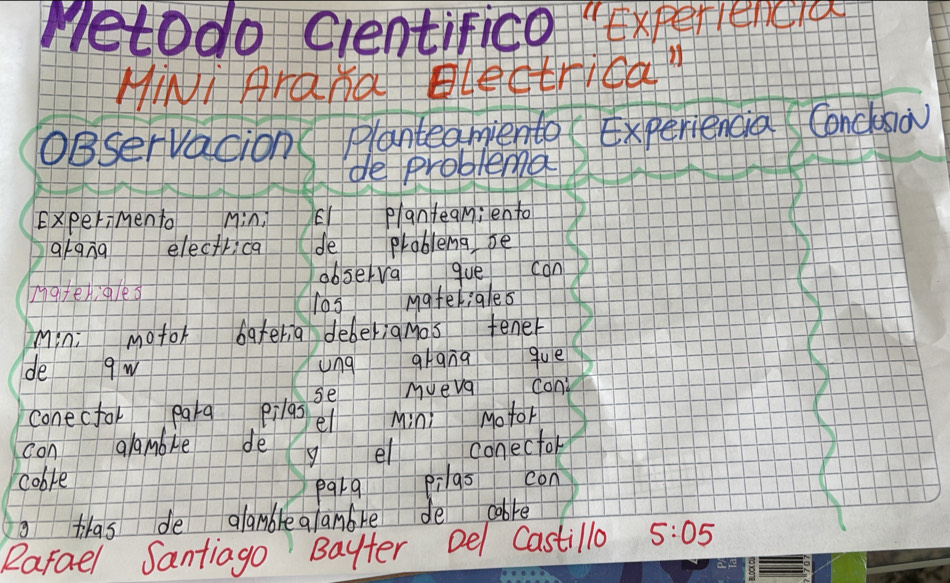 Metodo Cientifico "Experiencia
MiNi Araña Electrica"
OBServacion
Planteamiento
de problema
Experiencia
Conclusion
Experimento mini
araña electrica
Materiales
Mini motor bateria
de 9w
conector para pilas
con alambre de
cobre
9 tiras de alambre
El planteamiento
de problema, se
observa que con
los materiales
deberiamos tener
una araña que
se mueva con:
el mini motor
y el conector
para pilas con
alambre de cobre
Rafael Santiago Bayter Del Castillo 5:05